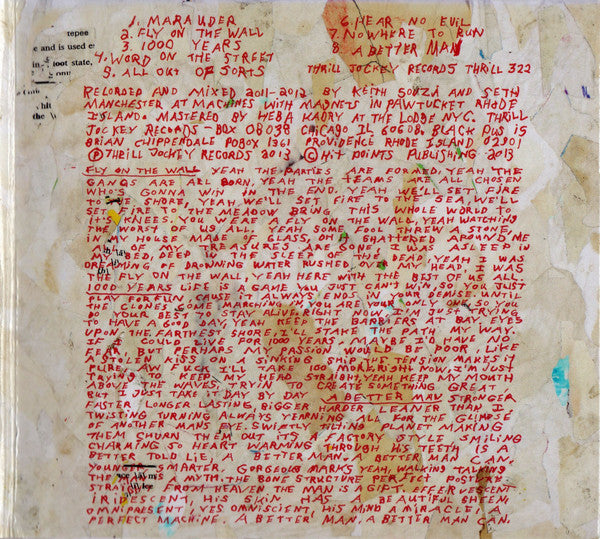 tepee
and is used e
in- loot state,
om
hit
the
1. MARAUDER
2. FLY ON THE WALL
3. 1000 YEARS
4. WORD ON THE STREET
5. ALL OUT OF SORTS
6. HEAR NO EVIL
7. NOWHERE TO RUN
8 A BETTER MAN
THRILL JOCKEY RECORDS THRILL 322
RECORDED AND MIXED 2011-2012 BY KEITH SOUZA AND SETH
MANCHESTER AT MACHINES WITH MAGNETS IN PAWTUCKET RHODE
ISLAND. MASTERED BY HEBA KADRY AT THE LODGE NYC. THRILL
JOCKEY RECORDS-BOX 08038 CHICAGO IL 60608. BLACK PUS IS
BRIAN CHIPPENDALE POBOX 1361 PROVIDENCE RHODE ISLAND 02901
Ⓟ THRILL JOCKEY RECORDS 2013 © HIT POINTS PUBLISHING 2013
FLY ON THE WALL YEAH THE PARTIES ARE FORMED YEAH THE
GANGS ARE ALL BORN, YEAH THE TEAMS ARE ALL CHOSEN
WHO'S GONNA WIN IN THE END. YEAH WE'LL SET FIRE
TO THE SHORE, YEAH WE'LL SET FIRE TO THE SEA WE'LL
SET FIRE TO THE MEADOW BRING THIS WHOLE WORLD TO
IT'S KNEES. YOU WERE A FLY ON THE WALL, YEAH WATCHING
THE WORST OF US ALL. YEAH SOME FOOL THREW A STONE,
IN MY HOUSE MADE OF GLASS, OH IT SHATTERED AROUND ME
ALL OF MY TREASURES ARE GONE. I WAS ASLEEP IN
MY BED, DEEP IN THE SLEEP OF THE DEAD, YEAH I WAS
DREAMING OF DROWNING WATER RUSHED, OVER MY HEAD, I WAS
THE FLY ON THE WALL, YEAH HERE WITH THE BEST OF US ALL.
1000 YEARS LIFE'S A GAME YOU JUST CAN'T WIN, SO YOU JUST
PLAY FOR FUN, CAUSE IT ALWAYS ENDS IN YOUR DEMISE. UNTIL
THE CLONES COME MARCHING IN YOU ARE YOUR ONLY ONE, SO YOU
DO YOUR BEST TO STAY ALIVE. RIGHT NOW, I'M JUST TRYING
TO HAVE A GOOD DAY, YEAH KEEP THE BARBIERS AT BAY, EYES
UPON THE FARTHEST SHORE I'LL TAKE THE PATH MY WAY.
IF I COULD LIVE FOR 1000 YEARS MAYBE I'D HAVE NO
FEAR, BUT PERHAPS MY PASSION WOULD BE POOR. LIKE
A STOLEN KIDS ON A SINKING SHIP THE TENSION MAKES IT
PURE, AW FUCK I'LL TAKE 100 MORE. RIGHT NOW, I'M JUST
TRYING TO KEEP MY HEAD STRAIGHT, YEAH KEEP MY MOUTH
ABOVE THE WAVES, TRYIN TO CREATE SOMETHING GREAT
BUT I JUST TAKE IT DAY BY DAY. A BETTER MAN STRONGER
FASTER LONGER LASTING, BIGGER HARDER LEANER THAN I
TWISTING TURNING ALWAYS YEARNING ALL FOR THE GLIMPSE
OF ANOTHER MANS EYE. SWIFTLY TILTING PLANET MAKING
THEM CHURN THEM OUT IT'S A FACTORY STYLE SMILING
CHARMING SO SMART WARNING THROUGH HIS TEETH IS A
BETTER TOLD LIE, A BETTER MAN. A BETTER MAN CAN.
YOUNGER SMARTER, GORGEOUS MARKS YEAH, WALKING TALKING
THE MAN IS A MYTH. THE BONE STRUCTURE PERFECT POSTURE
STRAIGHT FROM HEAVEN THE MAN IS A GIFT. EFFERVESCENT
IRIDESCENT, HIS SKIN HAS A BEAUTIFUL SHEEN,
OMNIPRESENT, YES OMNISCIENT, HIS MIND A MIRACLE, A
PERFECT MACHINE. A BETTER MAN, A BETTER MAN CAN.